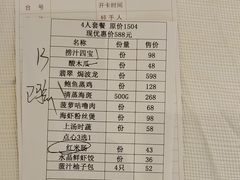 开卡时间
经手人
4人套餐 原价1504
现优惠价588元
名称 份量 售价
捞汁四宝 份 98
酸木瓜 份 48
翡翠 焗波龙 份 598
鲍鱼蒸鸡 份 128
清蒸海斑 500G 268
菠萝咕噜肉 份 68
海虾粉丝煲 份 98
上汤时蔬 份 58
点心3选1
红米肠 份 43
水晶鲜虾饺 份 36
菠汁柚子包 4只 52